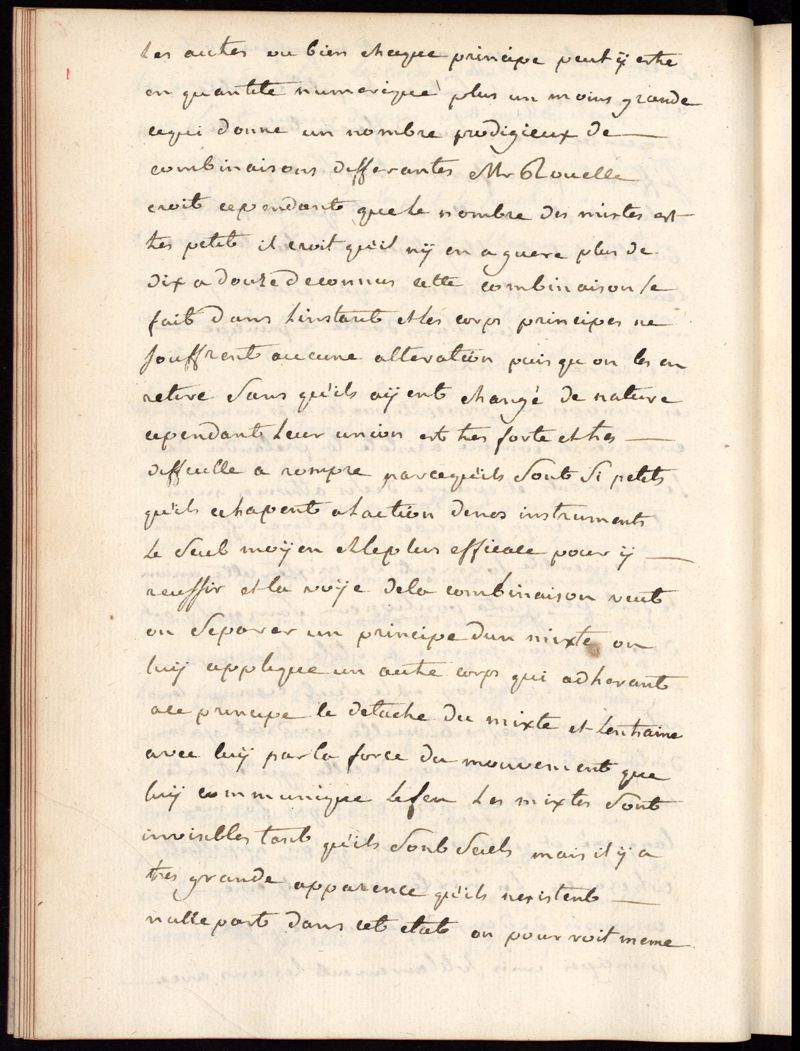 les autres ou bien chaque principe peut ÿ estre
en quantité numerique plus un moins grande
cequi donne un nombre prodigieux de
combinaisons differantes Mr Rouelle
croit cependant que le nombre des mixtes est
tres petit il croit qu'il n'ÿ en a guere plus de
dix a douze de connus cette combinaison se
fait dans linstant et les corps principes ne
souffrent aucune alteration puis qu on les en
retire sans qu'ils aÿent changé de nature
cependant leur union est tres forte et tres
difficille a rompre parcequ'ils sont si petits
qu'ils echapent a laction denos instruments
le seul moÿen et le plus efficace pour ÿ
reussir est la voÿe dela combinaison veut
on separer un principe dun mixte on
luÿ applique un autre corps qui adherant
ace principe le detache du mixte et lentraine
avec luÿ par la force du mouvement que
luÿ communique le feu les mixtes sont
invisibles tant qu'ils sont seuls mais il ÿ a
tres grande apparence qu'ils nexistent
nulle part dans cet etat on pourroit meme